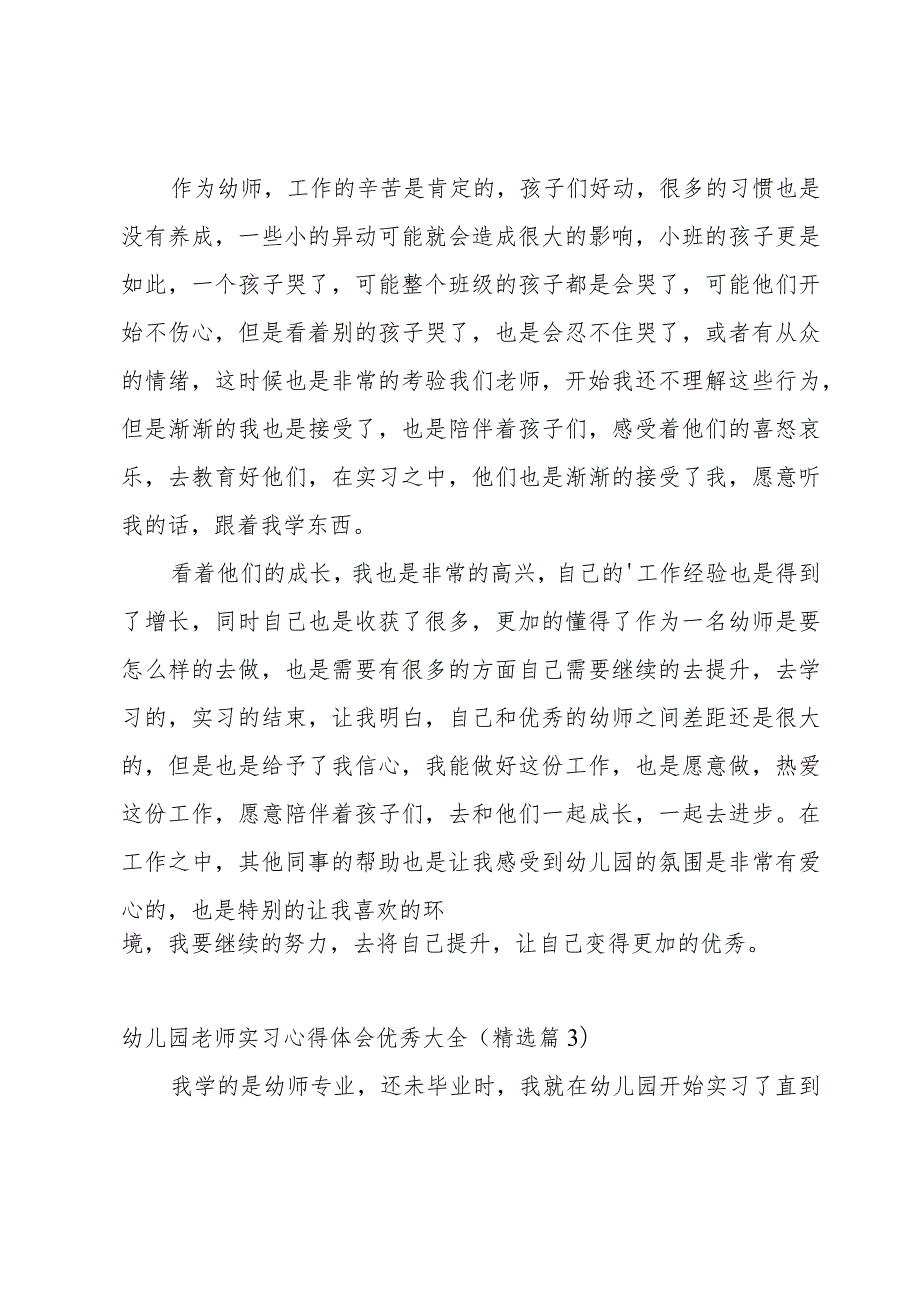 作为幼师，工作的辛苦是肯定的，孩子们好动，很多的习惯也是
没有养成，一些小的异动可能就会造成很大的影响，小班的孩子更是
如此，一个孩子哭了，可能整个班级的孩子都是会哭了，可能他们开
始不伤心，但是看着别的孩子哭了，也是会忍不住哭了，或者有从众
的情绪，这时候也是非常的考验我们老师，开始我还不理解这些行为，
但是渐渐的我也是接受了，也是陪伴着孩子们，感受着他们的喜怒哀
乐，去教育好他们，在实习之中，他们也是渐渐的接受了我，愿意听
我的话，跟着我学东西。
看着他们的成长，我也是非常的高兴，自己的'工作经验也是得到
了增长，同时自己也是收获了很多，更加的懂得了作为一名幼师是要
怎么样的去做，也是需要有很多的方面自己需要继续的去提升，去学
习的，实习的结束，让我明白，自己和优秀的幼师之间差距还是很大
的，但是也是给予了我信心，我能做好这份工作，也是愿意做，热爱
这份工作，愿意陪伴着孩子们，去和他们一起成长，一起去进步。在
工作之中，其他同事的帮助也是让我感受到幼儿园的氛围是非常有爱
心的，也是特别的让我喜欢的环
境，我要继续的努力，去将自己提升，让自己变得更加的优秀。
幼儿园老师实习心得体会优秀大全（精选篇3）
我学的是幼师专业，还未毕业时，我就在幼儿园开始实习了直到